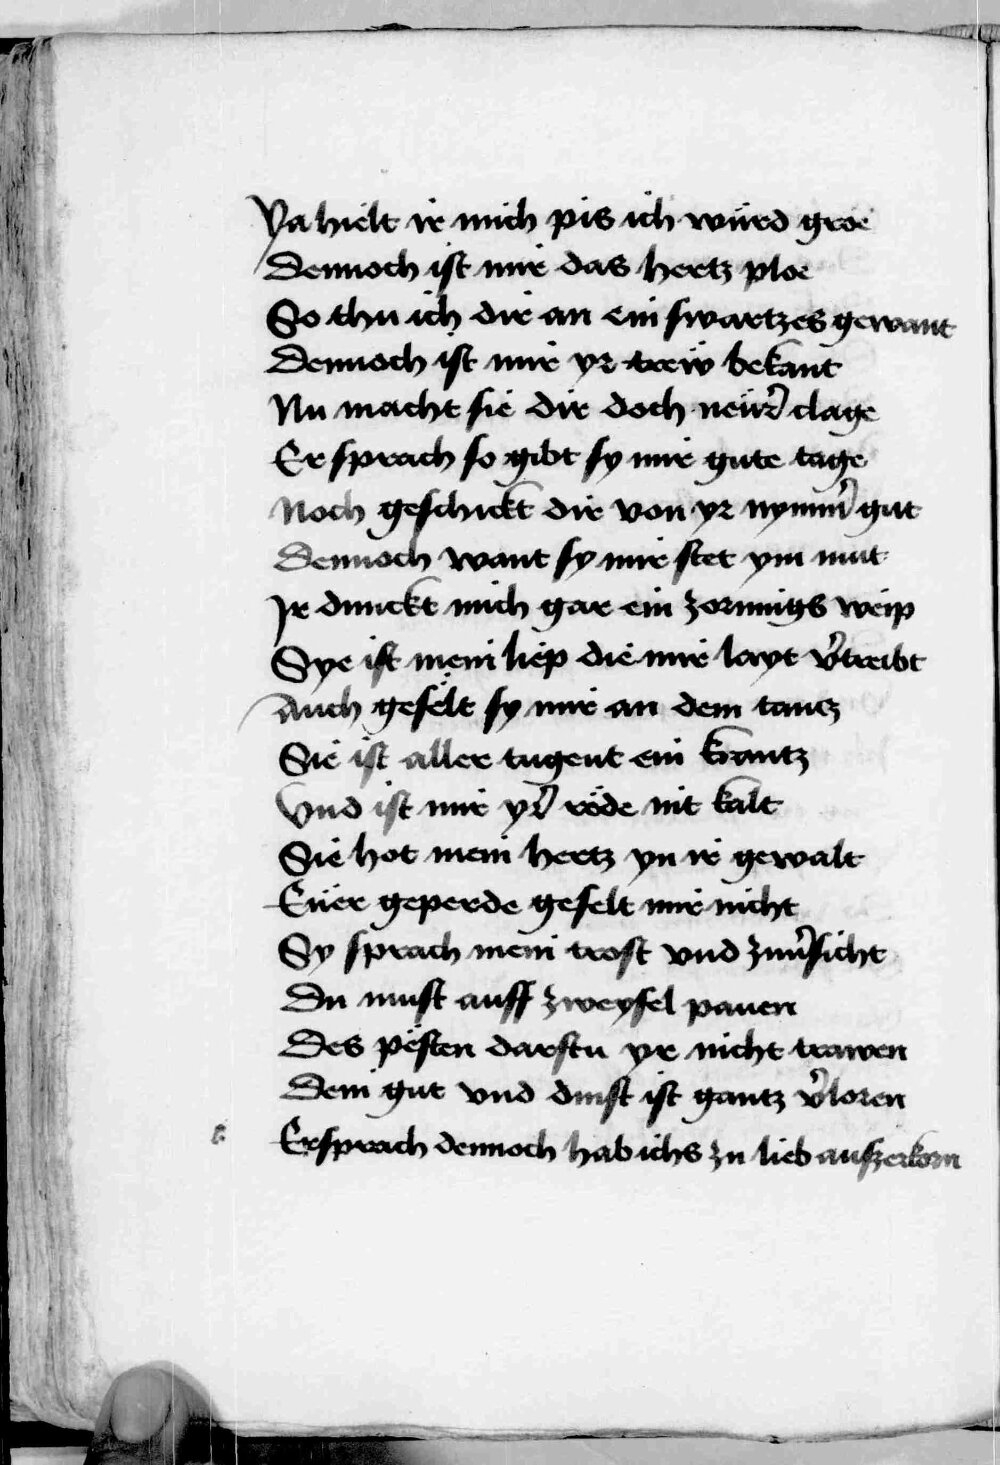 Ya hielt ir mich pis ich würd groe
Dennoch ist mir das hertz ploe
So thu ich dir an ein swartzes gewant
Dennoch ist mir yr trew bekant
Nu macht sie dir doch neür clage
Er sprach so gibt sy mir gute tage
Noch geschickt dir von yr nymm̄ gut
Dennoch want sy mir stet ym mut
Ir dunckt mich gar ein zornigs weip
Sye ist mein liep die mir layt v̄treibt
Auch gefelt sy mir an dem tantz
Sie ist aller tugent ein krantz
Vnd ist mir yr̄ röde nit kalt
Sie hot mein hertz yn ir gewalt
Eüer geperde gefelt mir nicht
Sy sprach mein trost vnd zuūsicht
Du must auff zweyfel pauen
Des pesten darstu yr nicht trawen
Dein gut vnd dinst ist gantz v̄loren
Er sprach dennoch hab ichs zu lieb auszerkorn